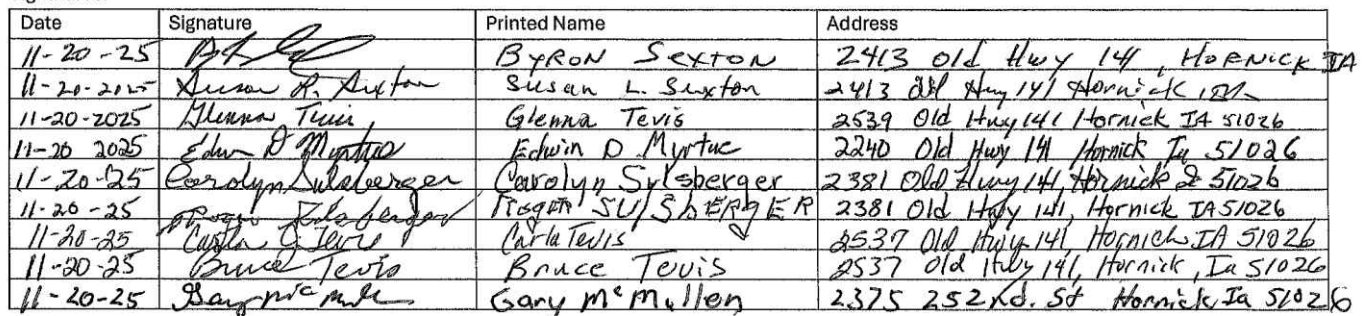 Date Signature Printed Name Address
11-20-25 Byron Sexton 2413 Old Hwy 141, Hornick IA
11-20-2025 Susan L. Sexton 2413 Old Hwy 141 Hornick, IA
11-20-2025 Glenna Tevis Glenna Tevis 2539 Old Hwy 141 Hornick IA 51026
11-20 2025 Edwin D Myrtue 2240 Old Hwy 141 Hornick Ia 51026
11-20-25 Carolyn Sulsberger Carolyn Sulsberger 2381 Old Hwy 141, Hornick Ia 51026
11-20-25 Roger Sulsberger Roger Sulsberger 2381 Old Hwy 141, Hornick IA 51026
11-20-25 Carla Tevis Carla Tevis 2537 Old Hwy 141, Hornick IA 51026
11-20-25 Bruce Tevis Bruce Tevis 2537 Old Hwy 141, Hornick, Ia 51026
11-20-25 Gary McMullen 2375 252nd. St Hornick Ia 51026